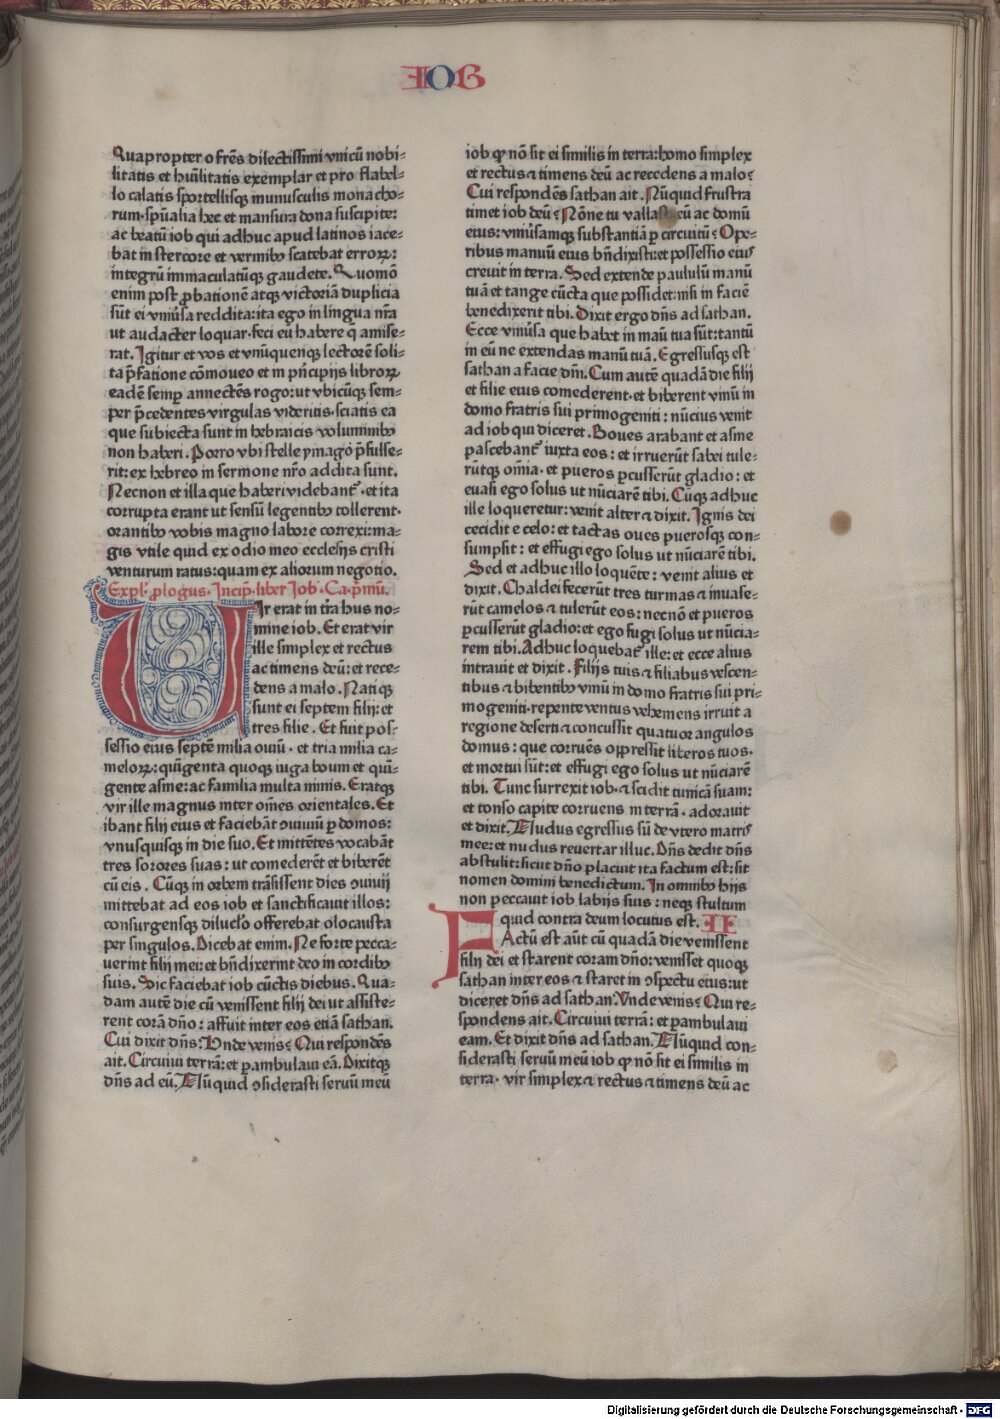 IOB
Quapropter o fr̄es dilectissimi vnicū nobi-
litatis et hūilitatis exemplar et pro flabel-
lo calatis sportellisq; munusculis monacho-
rum·sp̄ualia hec et mansura dona suscipite:
ac beatū iob qui adhuc apud latinos iace-
bat in stercore et vermibꝰ scatebat erroꝝ:
integrū immaculatūq; gaudete. Quomō
enim post ꝓbationē atq; victoriā duplicia
sūt ei vniu̓sa reddita:ita ego in lingua nr̄a
ut audacter loquar·feci eū habere q̄ amise-
rat. Igitur et vos et vnūquenq; lectorē soli-
ta p̄fatione cōmoueo et in pͥncipijs libroꝝ
eadē semꝑ annectēs rogo:ut vbicūq; sem-
per p̄cedentes virgulas videritis·sciatis ea
que subiecta sunt in hebraicis voluminibꝰ
non haberi. Porro vbi stelle ymago p̄fulse-
rit:ex hebreo in sermone nr̄o addita sunt.
Necnon et illa que haberi videbant᷑·et ita
corrupta erant ut sensū legentibꝰ tollerent·
orantibꝰ vobis magno labore correxi:ma-
gis vtile quid ex ocio meo ecclesijs cristi
venturum ratus:quam ex aliorum negotio.
Expl̓ ꝓlogus. Incip̓·liber Iob·Ca·pͥmū.
Uir erat in tr̄a hus no-
mine iob. Et erat vir
ille simplex et rectus
ac timens deū: et rece-
dens a malo. Natiq;
sunt ei septem filij: et
tres filie. Et fuit pos-
sessio eius septē milia ouiū · et tria milia ca-
meloꝝ: quīgenta quoq; iuga boum et quī-
gente asine: ac familia multa nimis. Eratq;
vir ille magnus inter om̄es orientales. Et
ibant filij eius et faciebāt ꝯuiuiū ꝑ domos:
vnusquisq; in die suo. Et mittētes vocabāt
tres sorores suas: ut comederēt et biberēt
cū eis. Cūq; in orbem trāsissent dies ꝯuiuij
mittebat ad eos iob et sanctificauit illos:
consurgensq; diluclo̓ offerebat olocausta
per singulos. Dicebat enim. Ne forte pecca-
uerint filij mei: et bn̄dixerint deo in cordibꝰ
suis. Sic faciebat iob cūctis diebus. Qua-
dam autē die cū venissent filij dei ut assiste-
rent corā dn̄o: affuit inter eos etiā sathan.
Cui dixit dn̄s: Unde venis? Qui respondēs
ait. Circuiui terrā: et ꝑambulaui eā. Dixitq;
dn̄s ad eū. Nūquid ꝯsiderasti seruū meū
iob ꝙ nō sit ei similis in terra: homo simplex
et rectus ⁊ timens deū ac recedens a malo?
Cui respondēs sathan ait. Nūquid frustra
timet iob deū? Nōne tu vallasti eū ac domū
eius: vniu̓samq; substantiā ꝑ circuitū? Ope-
ribus manuū eius bn̄dixisti: et possessio eiuˢ
creuit in terra. Sed extende paululū manū
tuā et tange cūcta que possidet: nisi in faciē
benedixerit tibi. Dixit ergo dn̄s ad sathan.
Ecce vniu̓sa que habet in manū tua sūt: tantū
in eū ne extendas manū tuā. Egressusq; est
sathan a facie dn̄i. Cum autē quadā die filij
et filie eius comederent·et biberent vinū in
domo fratris sui primogeniti: nūcius venit
ad iob qui diceret. Boues arabant et asine
pascebant᷑ iuxta eos: et irruerūt sabei tule-
rūtq; om̄ia· et pueros ꝑcusserūt gladio: et
euasi ego solus ut nūciarē tibi. Cūq; adhuc
ille loqueretur: venit alter ⁊ dixit. Ignis dei
cecidit e celo: et tactas oues puerosq; con-
sumpsit: et effugi ego solus ut nūciarē tibi.
Sed et adhuc illo loquēte: venit alius et
dixit. Chaldei fecerūt tres turmas ⁊ inuase-
rūt camelos ⁊ tulerūt eos: necnō et pueros
ꝑcusserūt gladio: et ego fugi solus ut nūcia-
rem tibi. Adhuc loquebat᷑ ille: et ecce alius
intrauit et dixit. Filijs tuis ⁊ filiabus vescen-
tibus ⁊ bibentibꝰ vinū in domo fratris sui pri-
mogeniti·repente ventus vehemens irruit a
regione deserti ⁊ concussit quatuor angulos
domus: que corruēs oppressit liberos tuos·
et mortui sūt: et effugi ego solus ut nūciarē
tibi. Tunc surrexit iob·⁊ scidit tunicā suam:
et tonso capite corruens in terrā·adorauit
et dixit. Nudus egressus sū de vtero matrꝭ
mee: et nudus reuertar illuc. Dn̄s dedit dn̄s
abstulit: sicut dn̄o placuit ita factum est: sit
nomen domini benedictum. In omnibꝰ hijs
non peccauit iob labijs suis: neq; stultum
quid contra deum locutus est. II
FActū est aūt cū quadā die venissent
filij dei et starent coram dn̄o: venisset quoq;
sathan inter eos ⁊ staret in ꝯspectu eius: ut
diceret dn̄s ad sathan. Vnde venis? Qui re-
spondens ait. Circuiui terrā: et ꝑambulaui
eam. Et dixit dn̄s ad sathan. Nūquid con-
siderasti seruū meū iob ꝙ nō sit ei similis in
terra· vir simplex ⁊ rectus ⁊ timens deū ac
Digitalisierung gefördert durch die Deutsche Forschungsgemeinschaft - DFG